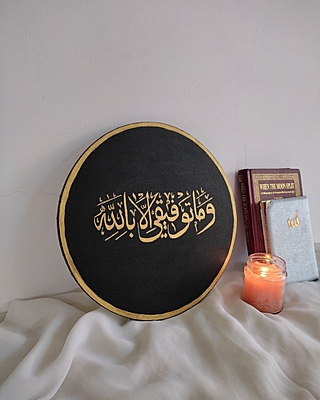 وَمَا تَوْفِيقِي إِلَّا بِاللَّهِ
WHEN THE MOON SPLIT